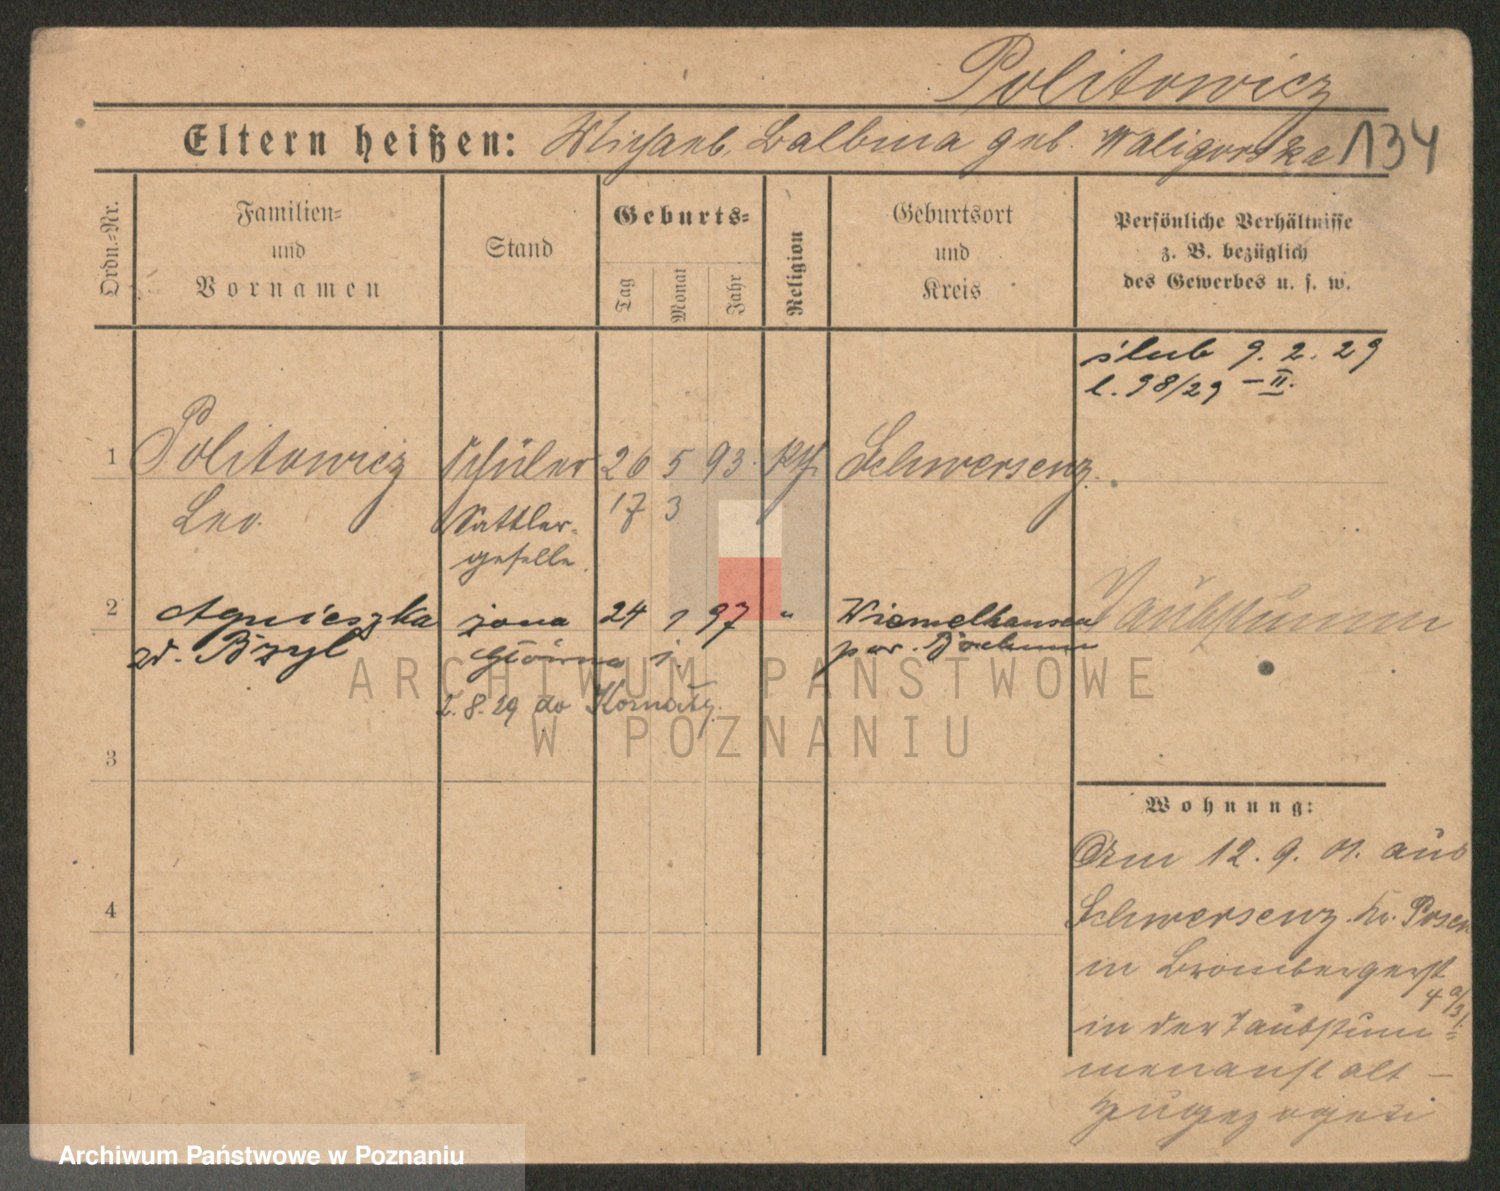 Politowicz
Eltern heißen: Michael, Balbina geb. Waligorska 134
Ordn.-Nr.
Familien-
und
Vornamen
Stand
Geburts-
Tag
Monat
Jahr
Religion
Geburtsort
und
Kreis
Persönliche Verhältnisse
z. B. bezüglich
des Gewerbes u. s. w.
ślub 9. 2. 29
l. 98/29 – II.
1 Politowicz Schüler 26 5 93. kth. Schwersenz.
Leo. Sattler- 17 3
geselle.
2 Agnieszka żona 24 1 97 " Wiemelhausen Taubstumm
zd. Bzyl Główna i. pow. Bochum
2. 8. 29 do
3
4
Wohnung:
Am 12. 9. 01. aus
Schwersenz. Kr. Posen
in Brombergerst
4 a/3 I.
in der Taubstum-
menanstalt –
zugezogen
ARCHIWUM PAŃSTWOWE
W POZNANIU
Archiwum Państwowe w Poznaniu